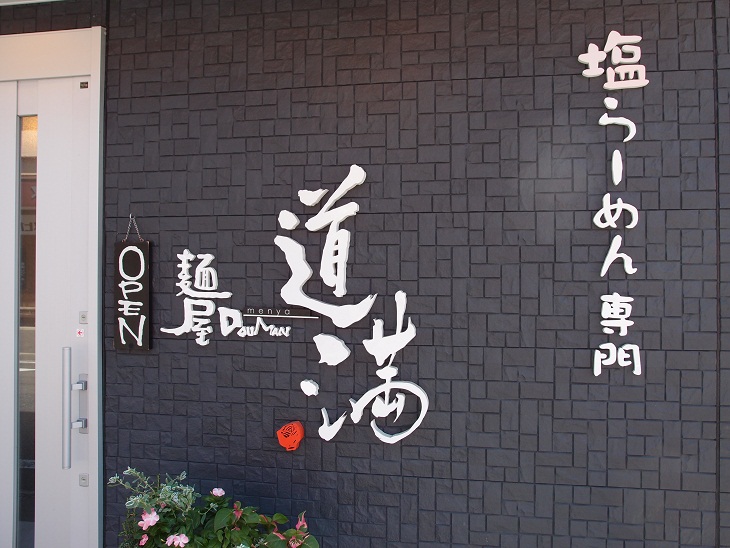 塩らーめん専門
道満
麺屋
menya
DouMAN
OPEN